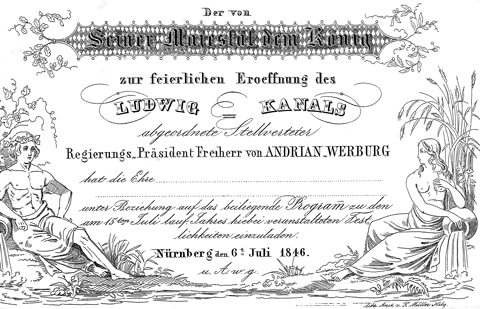 Der von
Seiner Majestät dem König
zur feierlichen Eroeffnung des
LUDWIG = KANALS
abgeordnete Stellvertreter
Regierungs-Präsident Freiherr von ANDRIAN-WERBURG
hat die Ehre
unter Beziehung auf das beiliegende Program zu den
am 15ten Juli lauf. Jahres hiebei veranstalteten Fest-
lichkeiten einzuladen.
Nürnberg den 6ten Juli 1846.
u. A. w. g.